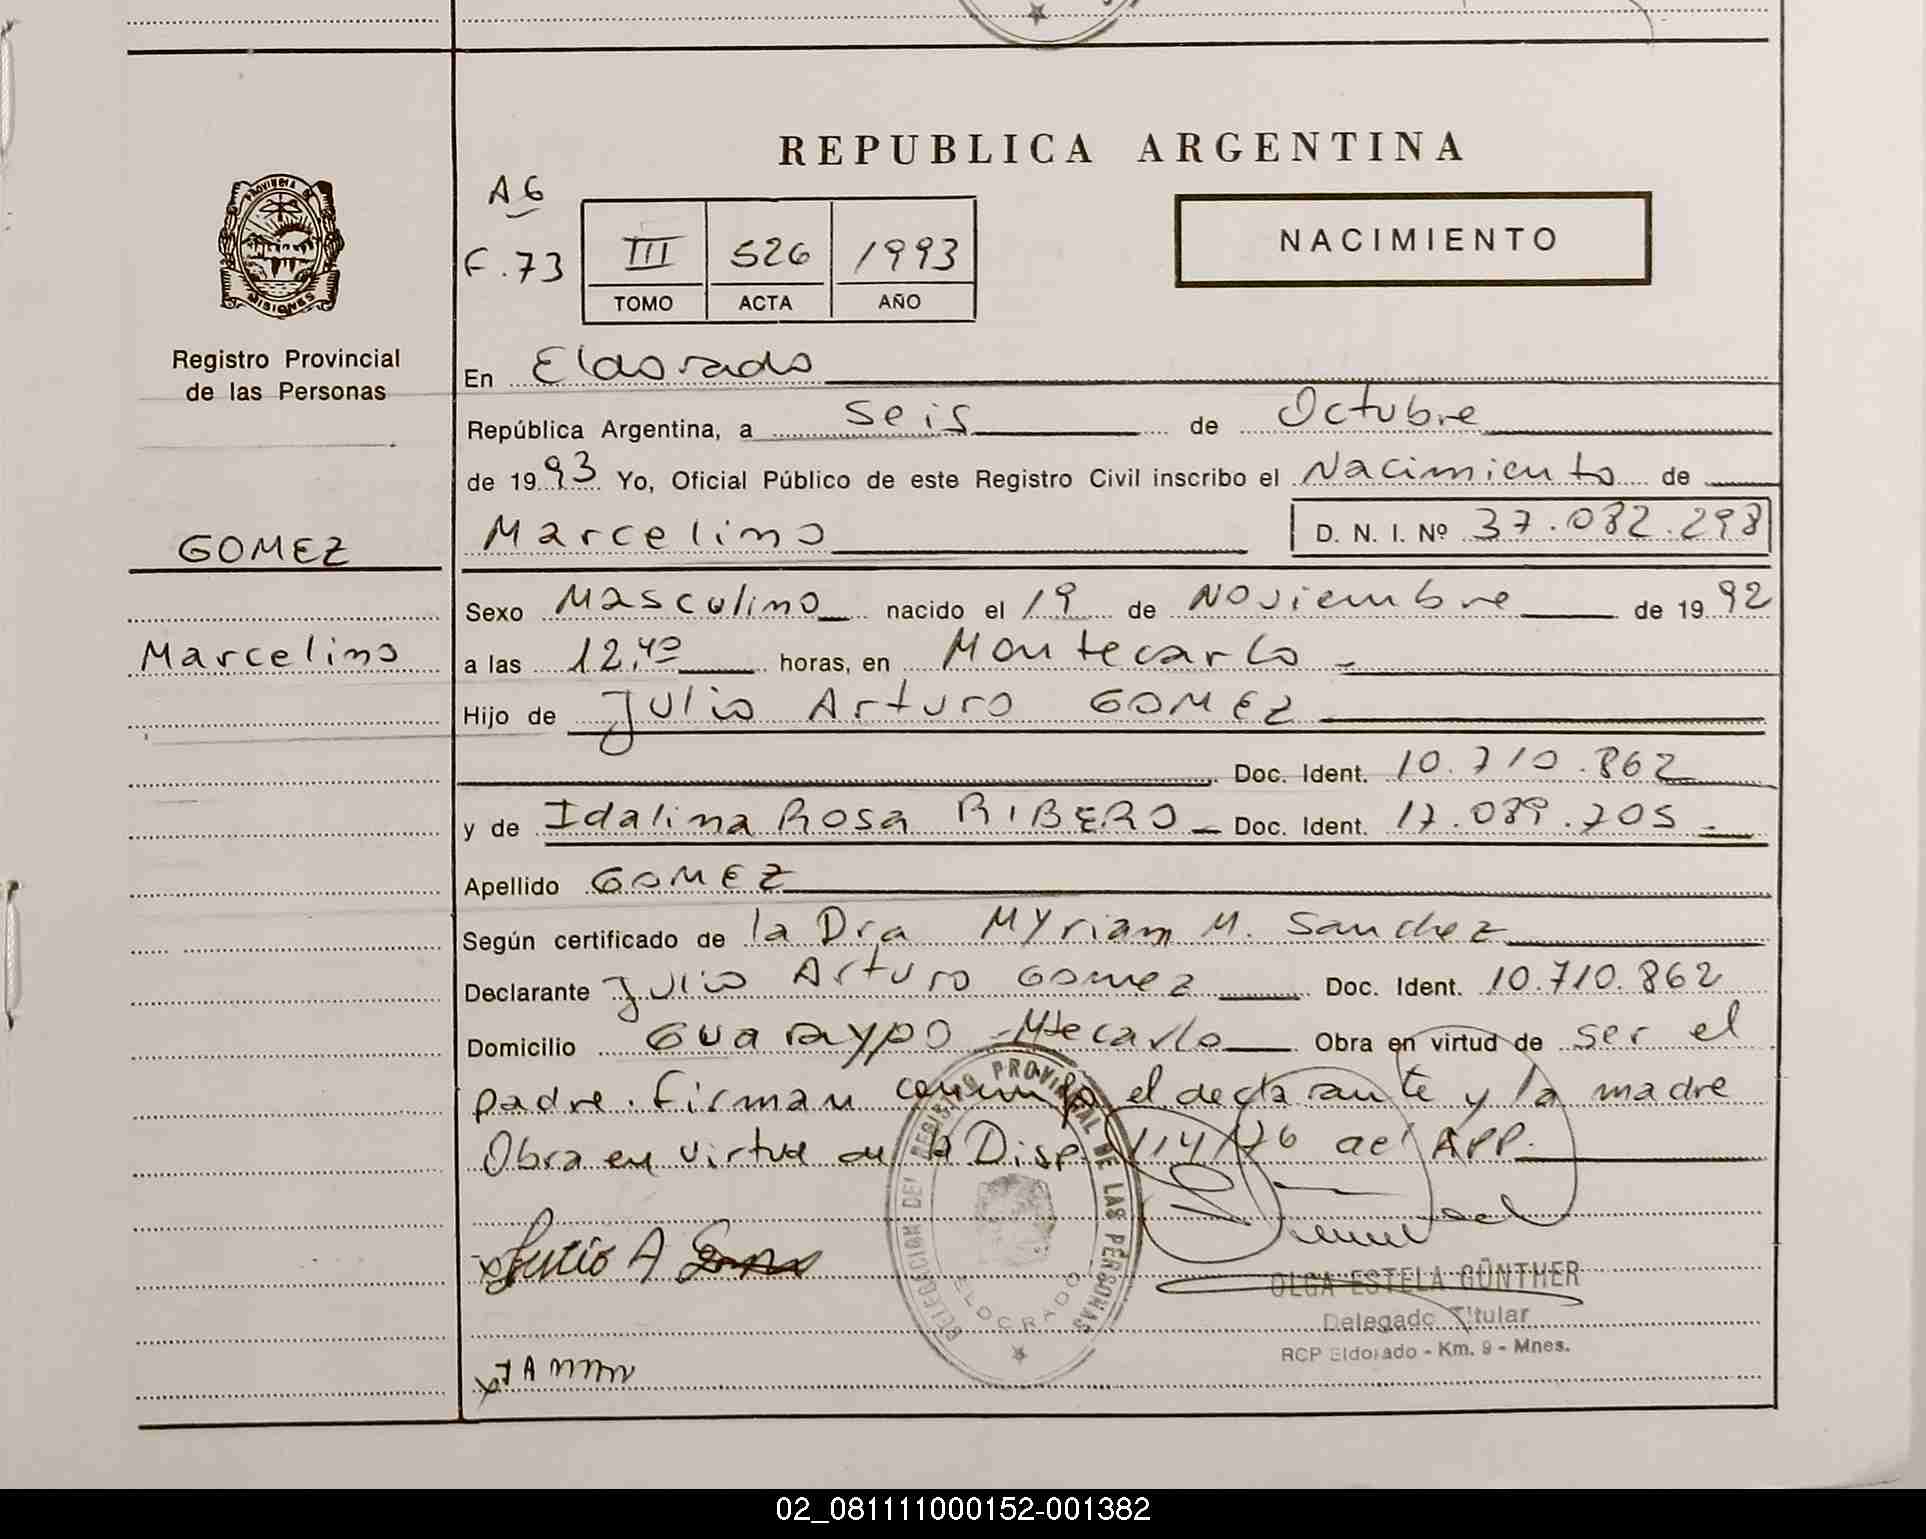 REPUBLICA ARGENTINA
A6
F.73
III 526 1993
TOMO ACTA AÑO
NACIMIENTO
PROVINCIA DE
MISIONES
Registro Provincial
de las Personas
GOMEZ
Marcelino
En Eldorado
República Argentina, a seis de Octubre
de 1993 Yo, Oficial Público de este Registro Civil inscribo el Nacimiento de
Marcelino D. N. I. Nº 37.082.298
Sexo Masculino nacido el 19 de Noviembre de 1992
a las 12,40 horas, en Montecarlo
Hijo de Julio Arturo GOMEZ
Doc. Ident. 10.710.862
y de Idalina Rosa RIBERO Doc. Ident. 17.089.705
Apellido GOMEZ
Según certificado de la Dra Myriam M. Sanchez
Declarante Julio Arturo Gomez Doc. Ident. 10.710.862
Domicilio Guaraypo - Mtecarlo Obra en virtud de ser el
padre. Firman conmigo el declarante y la madre
Obra en virtud de la Disp. 114/76 del APP.
Julio A
DELEGACION DEL REGISTRO PROVINCIAL DE LAS PERSONAS
ELDORADO
OLGA ESTELA GÜNTHER
Delegado Titular
RCP Eldorado - Km. 9 - Mnes.
02_081111000152-001382